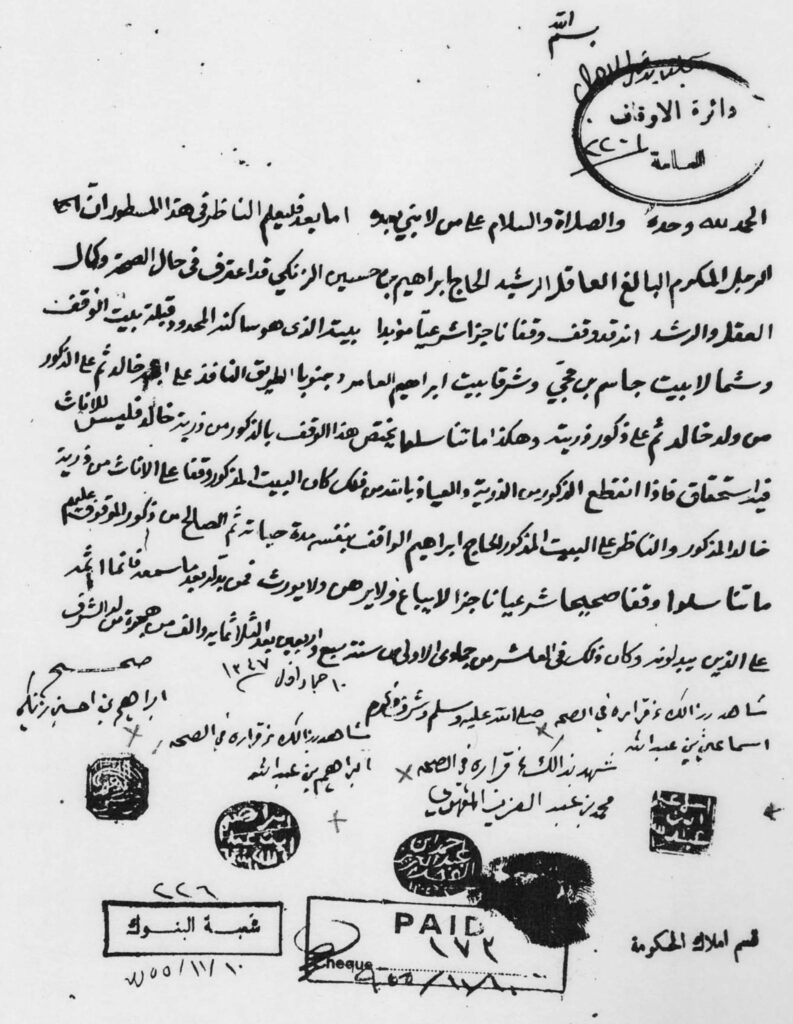 بسم الله
دائرة الاوقاف
العامة
الحمد لله وحده والصلاة والسلام على من لا نبي بعده اما بعد فليعلم الناظر في هذا المسطور ان
الرجل المكرم البالغ العاقل الرشيد الحاج ابراهيم بن حسين الزنكي قد اعترف في حال الصحة وكمال
العقل والرشد انه قد وقف وقفا ناجزا شرعيا مؤبدا بيته الذي هو ساكنه المحدود قبلة ببيت الوقف
وشمالا بيت جاسم بن حجي وشرقا بيت ابراهيم العامر وجنوبا الطريق النافذ على خالد ثم على الذكور
من ولد خالد ثم على ذكور ذريته وهكذا ما تناسلوا يختص هذا الوقف بالذكور من ذرية خالد فليس للاناث
فيه استحقاق فاذا انقطع الذكور من الذرية والعياذ بالله كان البيت المذكور وقفا على الاناث من ذرية
خالد المذكور والناظر على البيت المذكور الحاج ابراهيم الواقف بنفسه مدة حياته ثم الصالح من ذكور الموقوف عليهم
ما تناسلوا وقفا صحيحا شرعيا ناجزا لا يباع ولا يرهن ولا يورث فمن بدله بعد ما سمعه فانما اثمه
على الذين يبدلونه وكان ذلك في العاشر من جمادى الاولى من سنة سبع واربعين بعد الثلاثمايه والف من هجرة من له الشرف
١٠ جماد اول ١٣٤٧
صحيح
ابراهيم بن حسين زنكي
صلى الله عليه وسلم وشرف وكرم
شاهد بذالك قراره في الصحه
اسماعيل بن عبد الله
شاهد بذالك قراره في الصحه
ابراهيم بن عبد الله
شهد بذالك قراره في الصحه
محمد بن عبد العزيز
٢٢٦
شعبة البنوك
PAID
١٧٢
Cheque
قسم املاك الحكومة